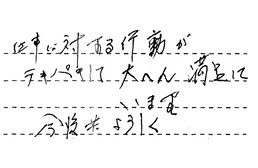 仕事に対する行動が
テキパキして大へん満足に
います
今後共よろしく